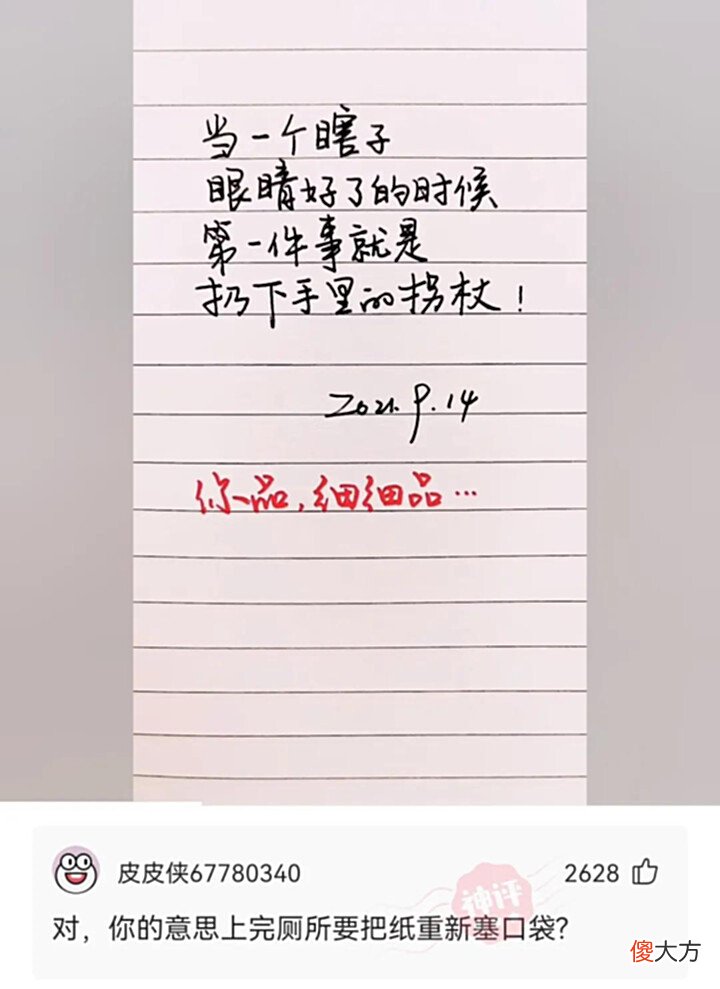 当一个瞎子
眼睛好了的时候
第一件事就是
扔下手里的拐杖！
2021.9.14
你品，细细品…
皮皮侠67780340
2628
神评
对，你的意思上完厕所要把纸重新塞口袋？
傻大方